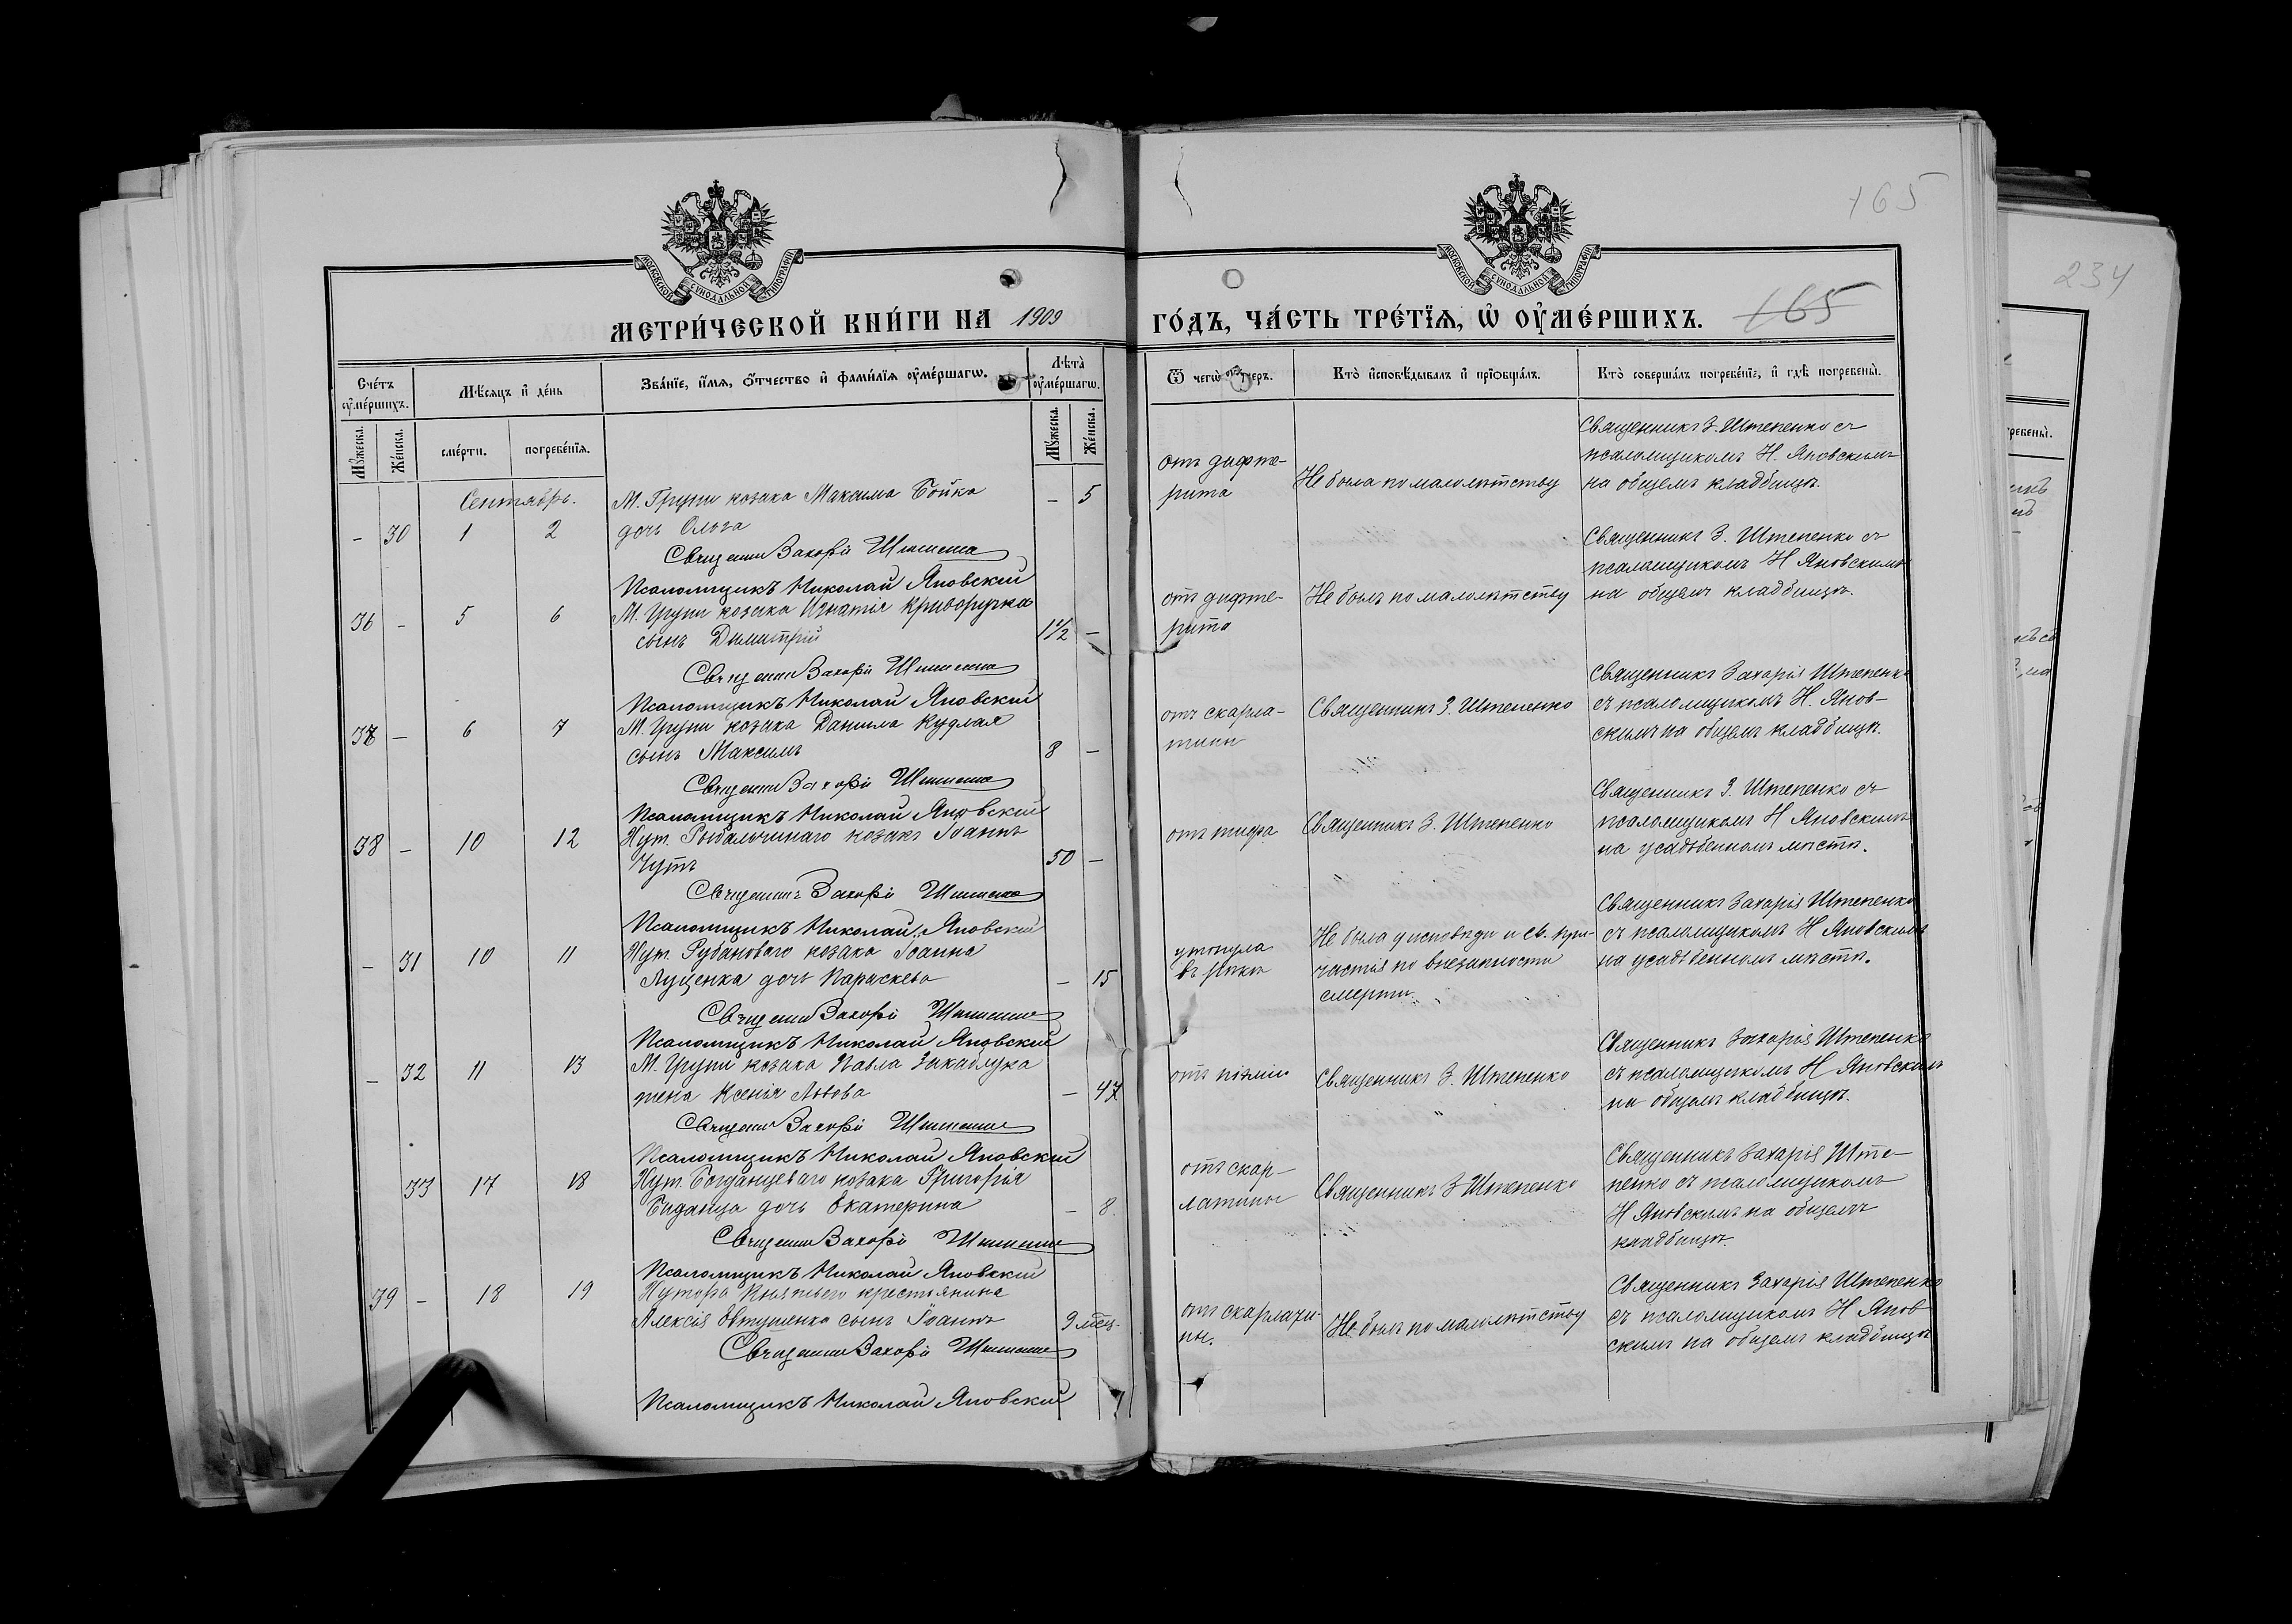 165
234
МОСКОВСКОЙ СѴНОДАЛЬНОЙ ТИПОГРАФІИ
МОСКОВСКОЙ СѴНОДАЛЬНОЙ ТИПОГРАФІИ
МЕТРИ́ЧЕСКОЙ КНИ́ГИ НА 1909 ГО́ДЪ, ЧА́СТЬ ТРЕ́ТЇѦ, Ѡ ОУ҆МЕ́РШИХЪ. 165
Сче́тъ оу҆ме́ршихъ.
Мѣ́сѧцъ и҆ де́нь
Зва́нїе, и҆́мѧ, ѻ҆́тчество и҆ фами́лїѧ оу҆ме́ршагѡ.
Лѣ́та оу҆ме́ршагѡ.
Ѿ чегѡ̀ оу҆́меръ.
Кто̀ и҆сповѣ́дывалъ и҆ прїѻбща́лъ.
Кто̀ соверша́лъ погребе́нїе, и҆ гдѣ̀ погребены̀.
Мꙋ́жеска.
Же́нска.
сме́рти.
погребе́нїѧ.
Мꙋ́жеска.
Же́нска.
Сентябрь.
– 30 1 2
М. Груни козака Максима Бойка
дочь Ольга
– 5
отъ дифте-
рита
Не была по малолѣтству
Священникъ З. Штепенко съ
псаломщикомъ Н. Яновскимъ
на общемъ кладбищѣ.
Священникъ Захарій Штепенко
Псаломщикъ Николай Яновскій
36 – 5 6
М. Груни козака Игнатія Криворучка
сынъ Димитрій
1 1/2 –
отъ дифте-
рита
Не былъ по малолѣтству
Священникъ З. Штепенко съ
псаломщикомъ Н Яновскимъ
на общемъ кладбищѣ.
Священникъ Захарій Штепенко
Псаломщикъ Николай Яновскій
37 – 6 7
М. Груни козака Данила Кудлая
сынъ Максимъ
8 –
отъ скарла-
тины
Священникъ З. Штепенко
Священникъ Захарія Штепенко
съ псаломщикомъ Н. Янов-
скимъ на общемъ кладбищѣ.
Священникъ Захарій Штепенко
Псаломщикъ Николай Яновскій
38 – 10 12
Хут. Рыбалочинаго козакъ Іоаннъ
Чутъ
50 –
отъ тифа
Священникъ З. Штепенко
Священникъ З. Штепенко съ
псаломщикомъ Н Яновскимъ
на усадьбенномъ мѣстѣ.
Священникъ Захарій Штепенко
Псаломщикъ Николай Яновскій
– 31 10 11
Хут. Рубановаго козака Іоанна
Луценка дочь Параскева
– 15
утонула
въ рѣкѣ
Не была у исповѣди и св. при-
частія по внезапности
смерти.
Священникъ Захарія Штепенко
съ псаломщикомъ Н Яновскимъ
на усадьбенномъ мѣстѣ.
Священникъ Захарій Штепенко
Псаломщикъ Николай Яновскій
– 32 11 13
М. Груни козака Павла
жена Ксенія Львова
– 47
отъ
Священникъ З. Штепенко
Священникъ Захарія Штепенко
съ псаломщикомъ Н Яновскимъ
на общемъ кладбищѣ.
Священникъ Захарій Штепенко
Псаломщикъ Николай Яновскій
33 17 18
Хут. Богданцеваго козака Григорія
дочь Екатерина
– 8
отъ скар-
латины
Священникъ З Штепенко
Священникъ Захарія Ште-
пенко съ псаломщикомъ
Н Яновскимъ на общемъ
кладбищѣ.
Священникъ Захарій Штепенко
Псаломщикъ Николай Яновскій
39 – 18 19
Хутора Княжего крестьянина
Алексія Евтушенко сынъ Іоаннъ
9 мѣс.
отъ скарлати-
ны.
Не былъ по малолѣтству
Священникъ Захарія Штепенко
съ псаломщикомъ Н Янов
скимъ на общемъ кладбищѣ
Священникъ Захарій Штепенко
Псаломщикъ Николай Яновскій